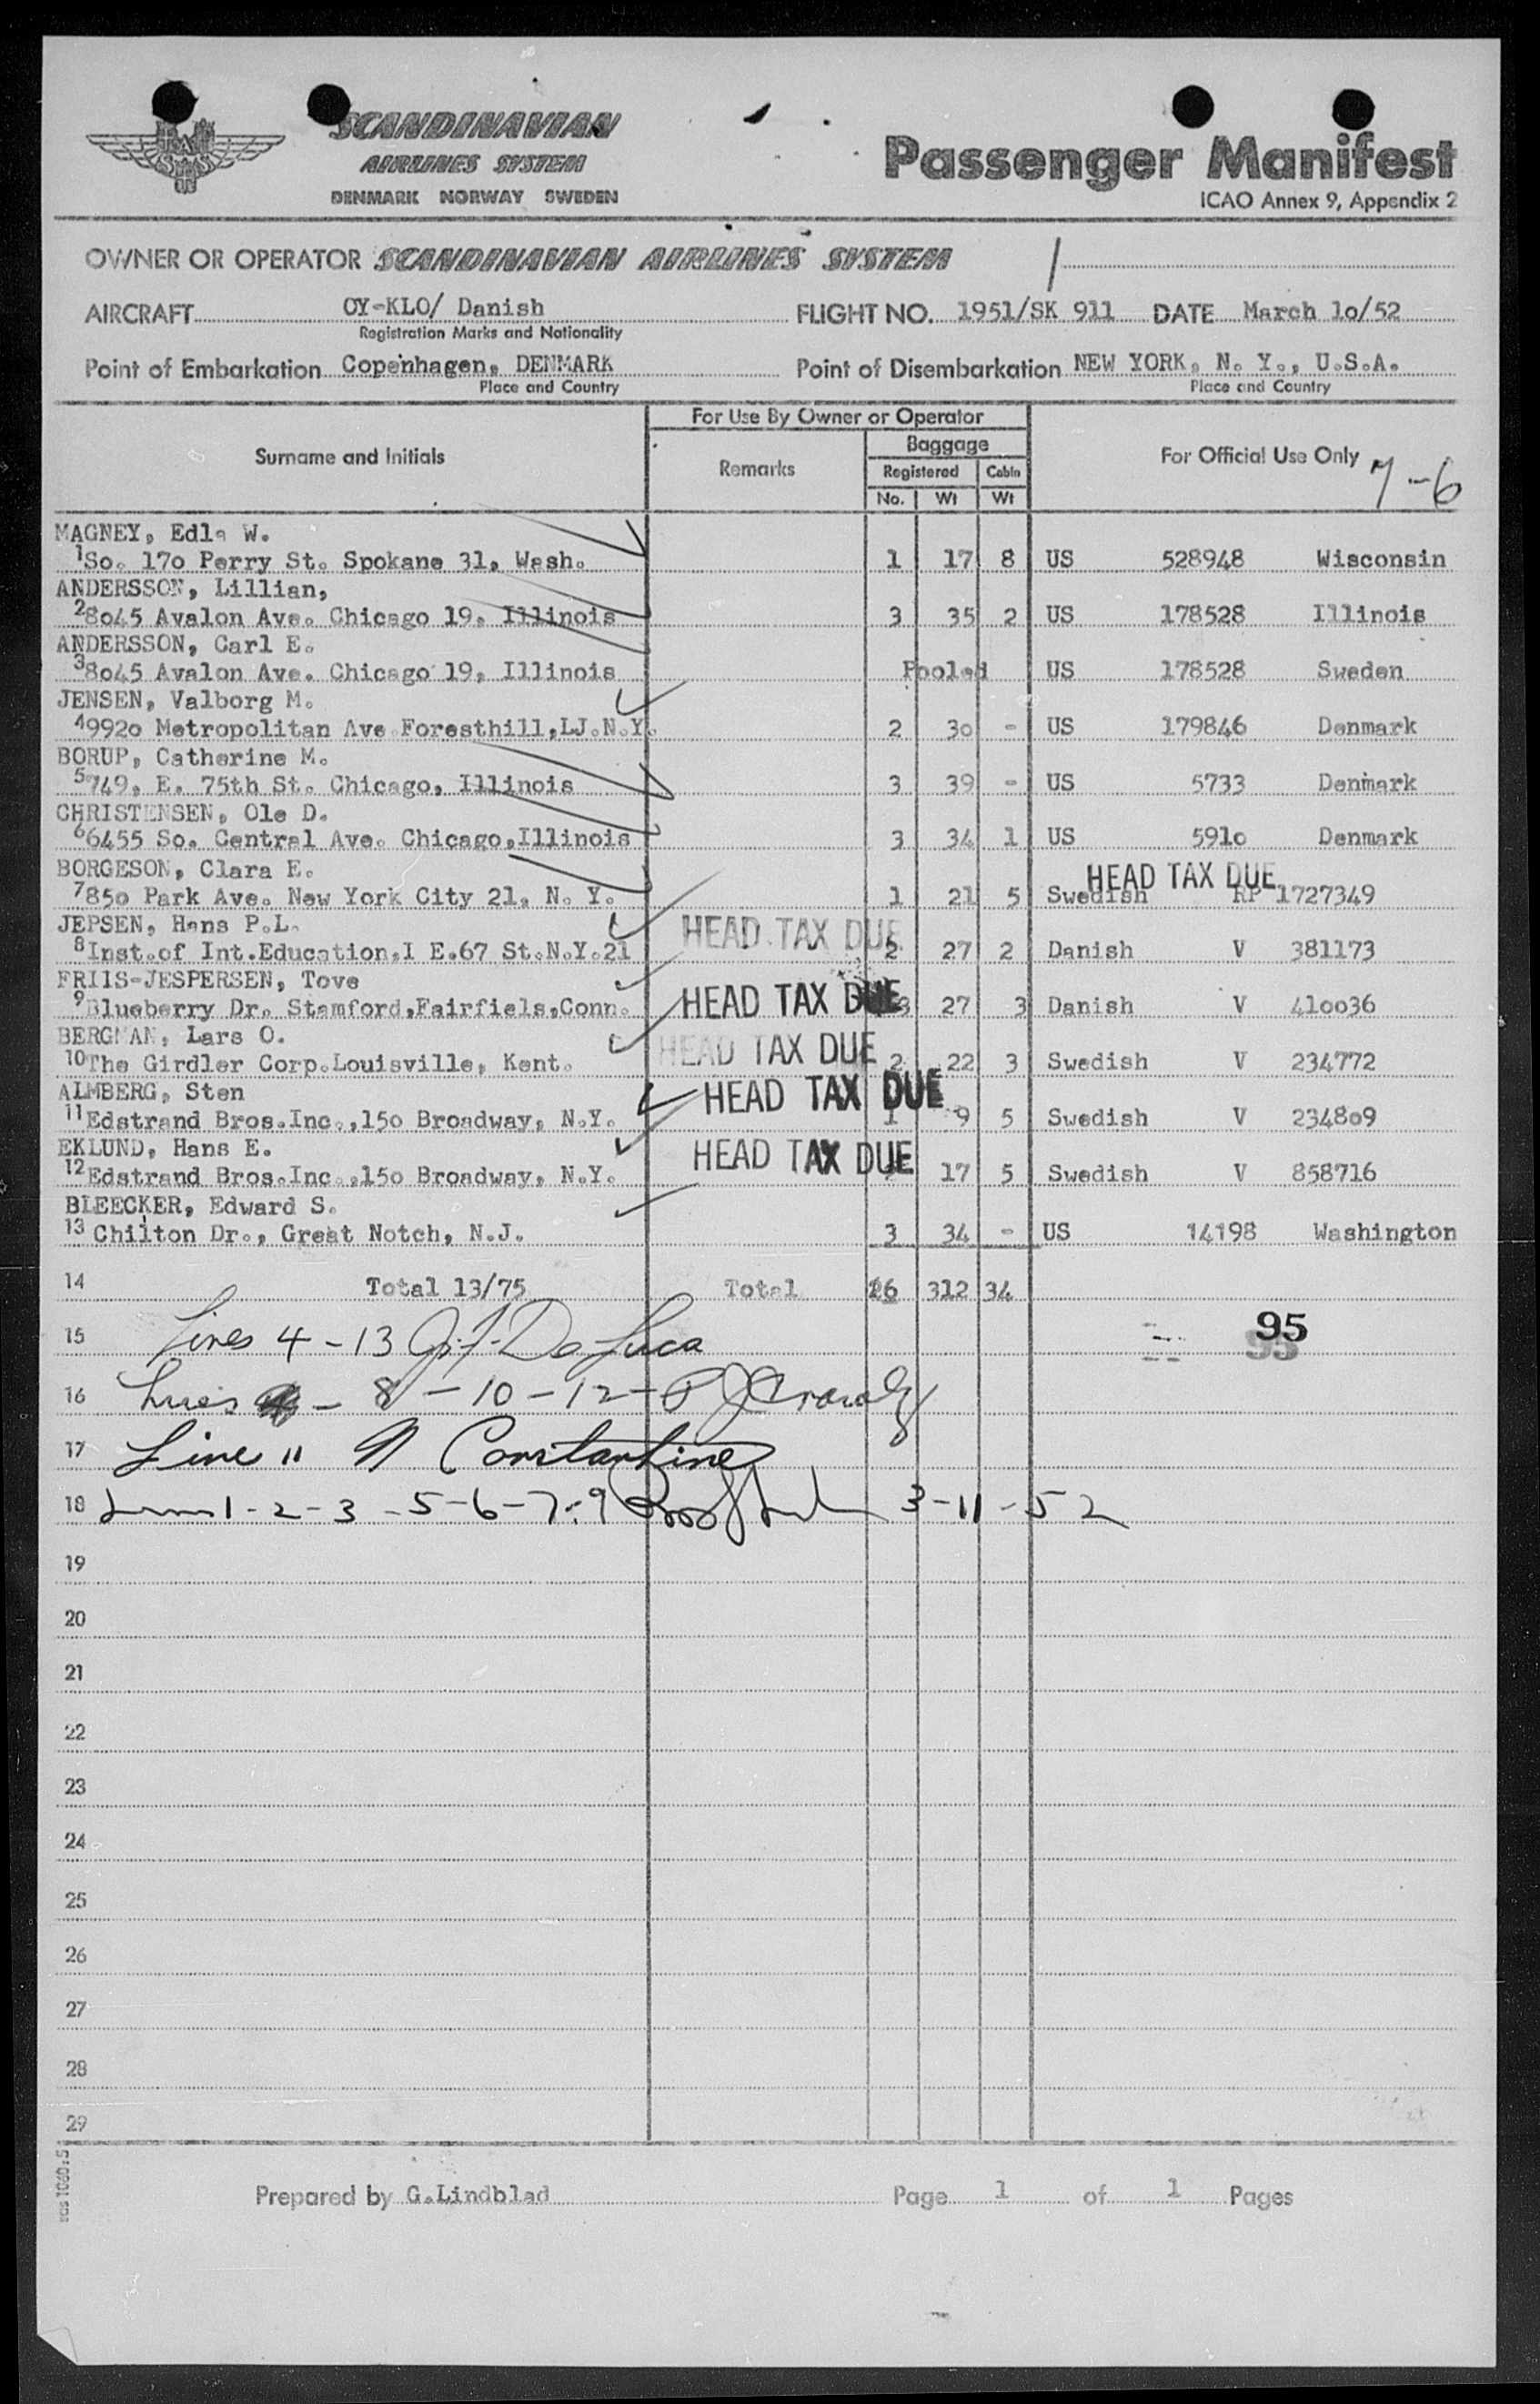 SCANDINAVIAN
AIRLINES SYSTEM
DENMARK NORWAY SWEDEN
Passenger Manifest
ICAO Annex 9, Appendix 2
OWNER OR OPERATOR SCANDINAVIAN AIRLINES SYSTEM
AIRCRAFT OY-KLO/ Danish FLIGHT NO. 1951/SK 911 DATE March 1o/52
Registration Marks and Nationality
Point of Embarkation Copenhagen, DENMARK Point of Disembarkation NEW YORK, N. Y., U.S.A.
Place and Country Place and Country
For Use By Owner or Operator
Surname and Initials Remarks Baggage For Official Use Only 7-6
Registered Cabin
No. Wt Wt
MAGNEY, Edla W.
1 So. 17o Perry St. Spokane 31, Wash. 1 17 8 US 528948 Wisconsin
ANDERSSON, Lillian,
2 8o45 Avalon Ave. Chicago 19, Illinois 3 35 2 US 178528 Illinois
ANDERSSON, Carl E.
3 8o45 Avalon Ave. Chicago 19, Illinois Pooled US 178528 Sweden
JENSEN, Valborg M.
4 992o Metropolitan Ave Foresthill,LJ.N.Y. 2 3o - US 179846 Denmark
BORUP, Catherine M.
5 749, E. 75th St. Chicago, Illinois 3 39 - US 5733 Denmark
CHRISTENSEN, Ole D.
6 6455 So. Central Ave. Chicago,Illinois 3 34 1 US 591o Denmark
BORGESON, Clara E. HEAD TAX DUE
7 85o Park Ave. New York City 21, N. Y. 1 21 5 Swedish RP 1727349
JEPSEN, Hans P.L. HEAD TAX DUE
8 Inst.of Int.Education,1 E.67 St.N.Y.21 2 27 2 Danish V 381173
FRIIS-JESPERSEN, Tove HEAD TAX DUE
9 Blueberry Dr. Stamford,Fairfiels,Conn. 3 27 3 Danish V 41oo36
BERGMAN, Lars O. HEAD TAX DUE
10 The Girdler Corp.Louisville, Kent. 2 22 3 Swedish V 234772
ALMBERG, Sten HEAD TAX DUE
11 Edstrand Bros.Inc.,15o Broadway, N.Y. 1 9 5 Swedish V 2348o9
EKLUND, Hans E. HEAD TAX DUE
12 Edstrand Bros.Inc.,15o Broadway, N.Y. 17 5 Swedish V 858716
BLEECKER, Edward S.
13 Chilton Dr., Great Notch, N.J. 3 34 - US 14198 Washington
14 Total 13/75 Total 26 312 34
15 Lines 4 - 13 De Luca 95
16 Lines - 8 - 10 - 12 -
17 Line 11 N Constantine
18 1 - 2 - 3 - 5 - 6 - 7 - 9 3-11-52
19
20
21
22
23
24
25
26
27
28
29
sas 1060:5
Prepared by G.Lindblad Page 1 of 1 Pages